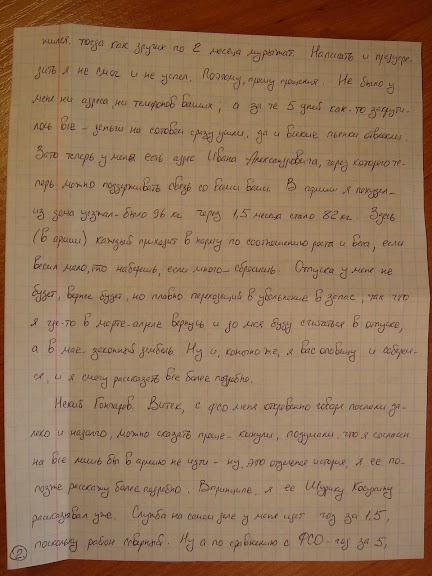 жился, тогда как других по 2 месяца мурыжат. Написать и предупре-
дить я не смог и не успел. Поэтому, прошу прощения. Не было у
меня ни адреса, ни телефонов ваших, а за те 5 дней как-то закрути-
лось все - деньги на сотовом сразу ушли, да и всякие пьянки
Зато теперь у меня есть адрес Ивана Александровича, через которого те-
перь можно поддерживать связь со всеми вами. В армии я похудел -
из дома уезжал - было 96 кг через 1,5 месяца стало 82 кг. Здесь
(в армии) каждый приходит в норму по соотношению роста и веса, если
весил мало, то наберешь, если много - сбросишь. Отпуска у меня не
будет, вернее будет, но плавно переходящий в увольнение в запас, так что
я где-то в марте-апреле вернусь и до мая буду считаться в отпуске,
а в мае - законный дембель. Ну и, конечно же, я вас оповещу и соберем-
ся, и я смогу рассказать все более подробно.
Некий Гончаров. Витек, с ФСО меня откровенно говоря послали да-
леко и надолго, можно сказать проще - кинули, подумали, что я согласен
на все лишь бы в армию не идти - ну, это отдельная история, я ее по-
позже расскажу более подробно. В принципе, я ее Шурику
рассказывал уже. Служба на самом деле у меня идет год за 1,5,
поскольку район северный. Ну а по сравнению с ФСО - год за 5,
2